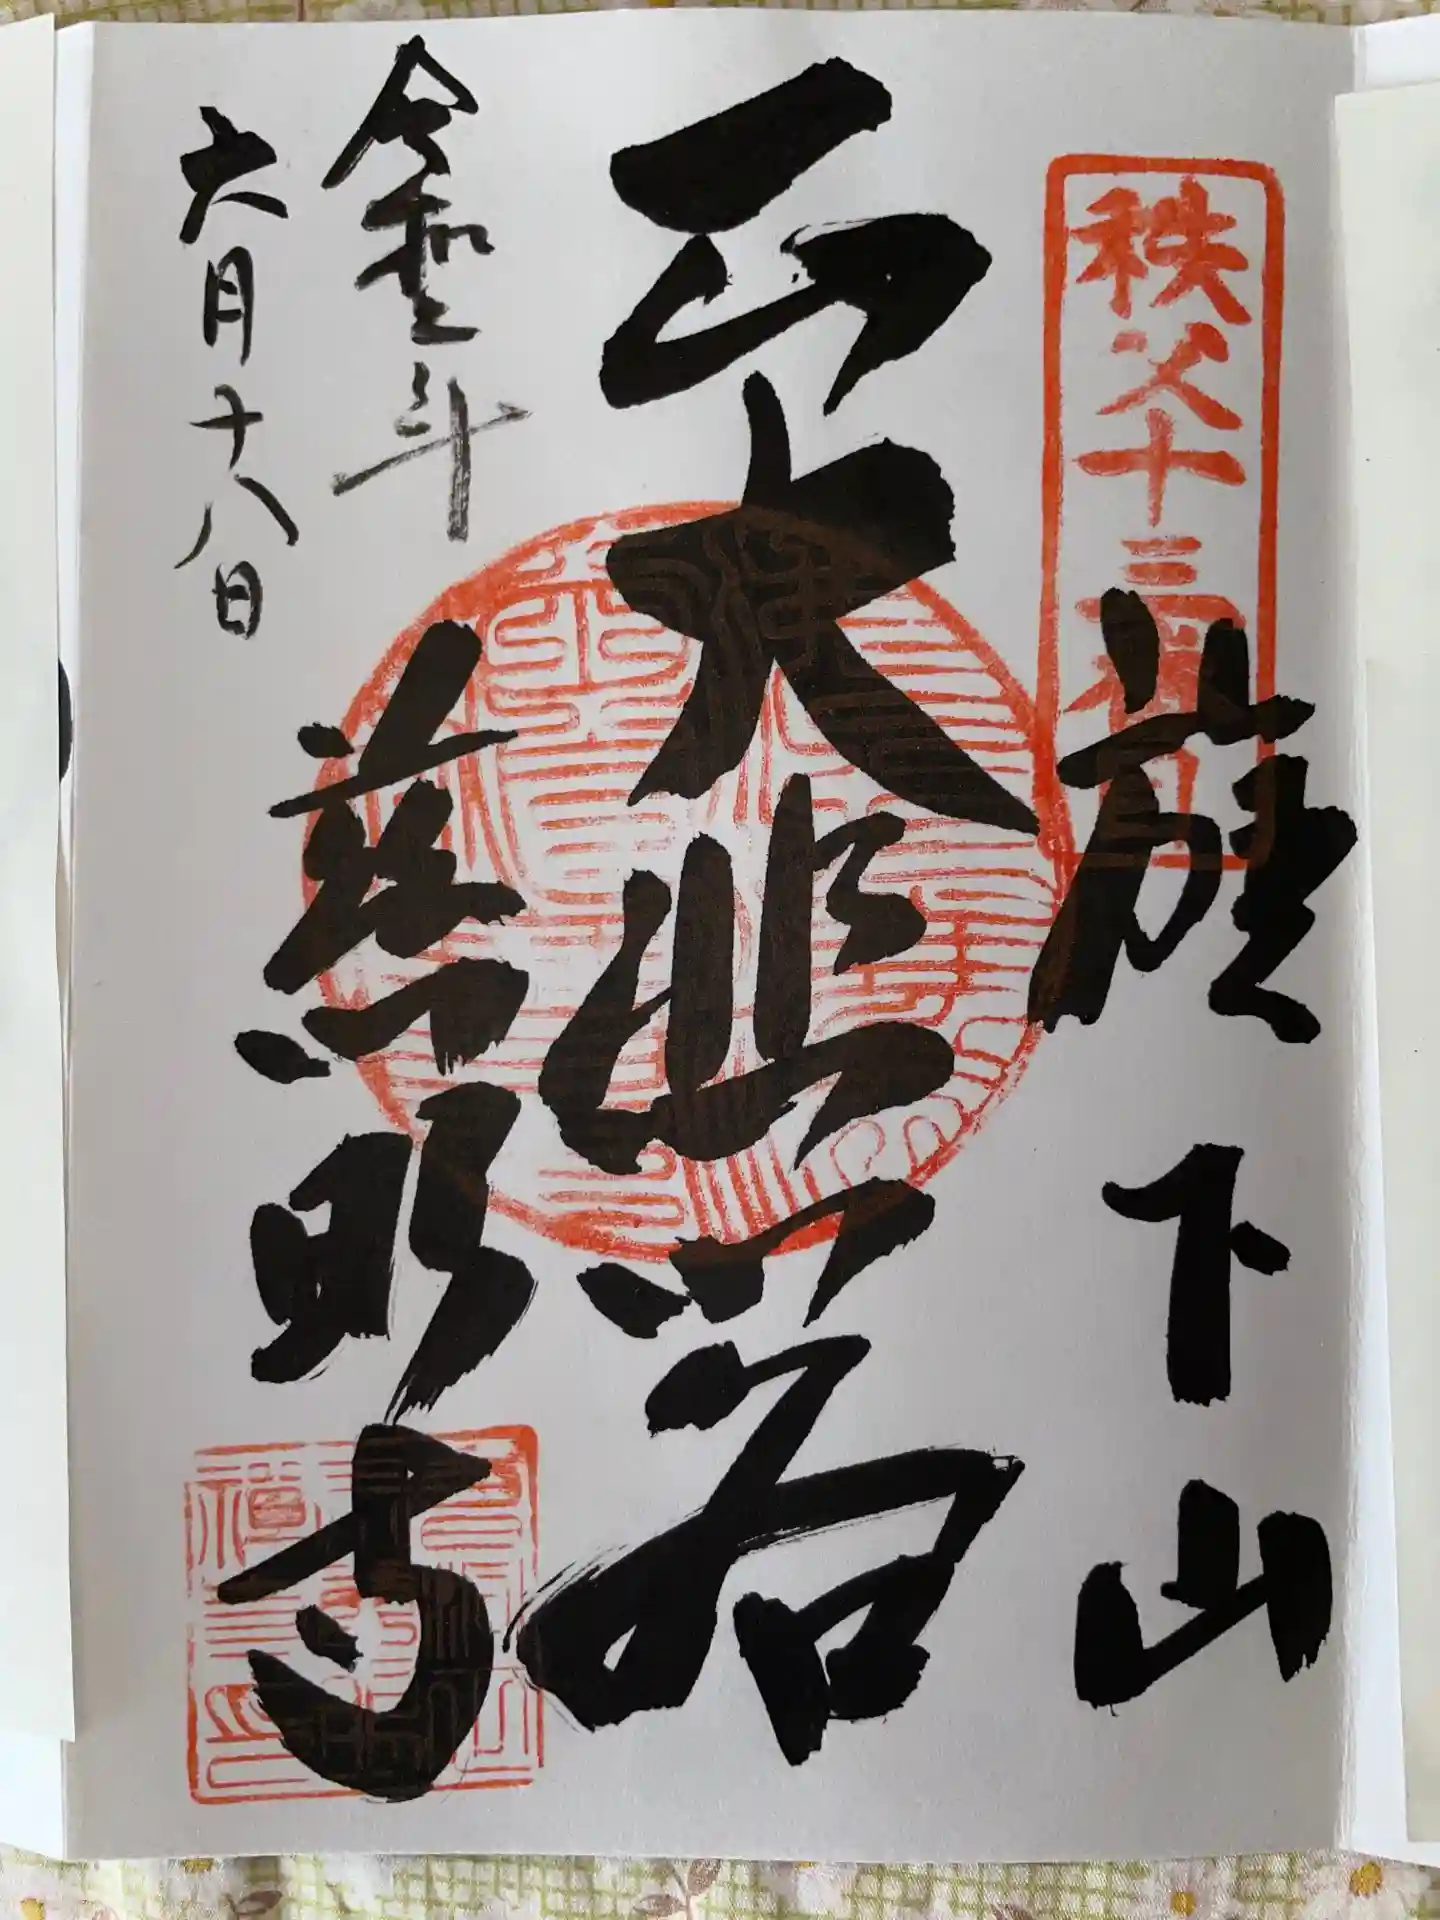 秩父十三番
旗下山
正大悲閣
慈眼寺
令和 年
六月十八日